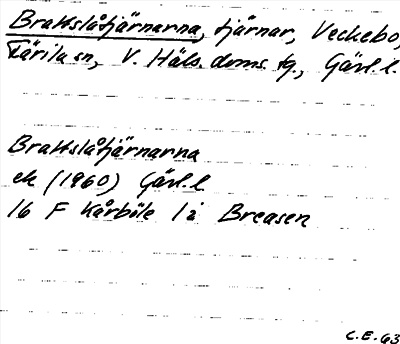 Brattslåtjärnarna, tjärnar, Veckebo,
Färila sn, V. Häls. doms. tg., Gävl. l.
Brattslåtjärnarna
ek (1960) Gävl. l
16 F Kårböle 1 i Breasen
C.E. 63